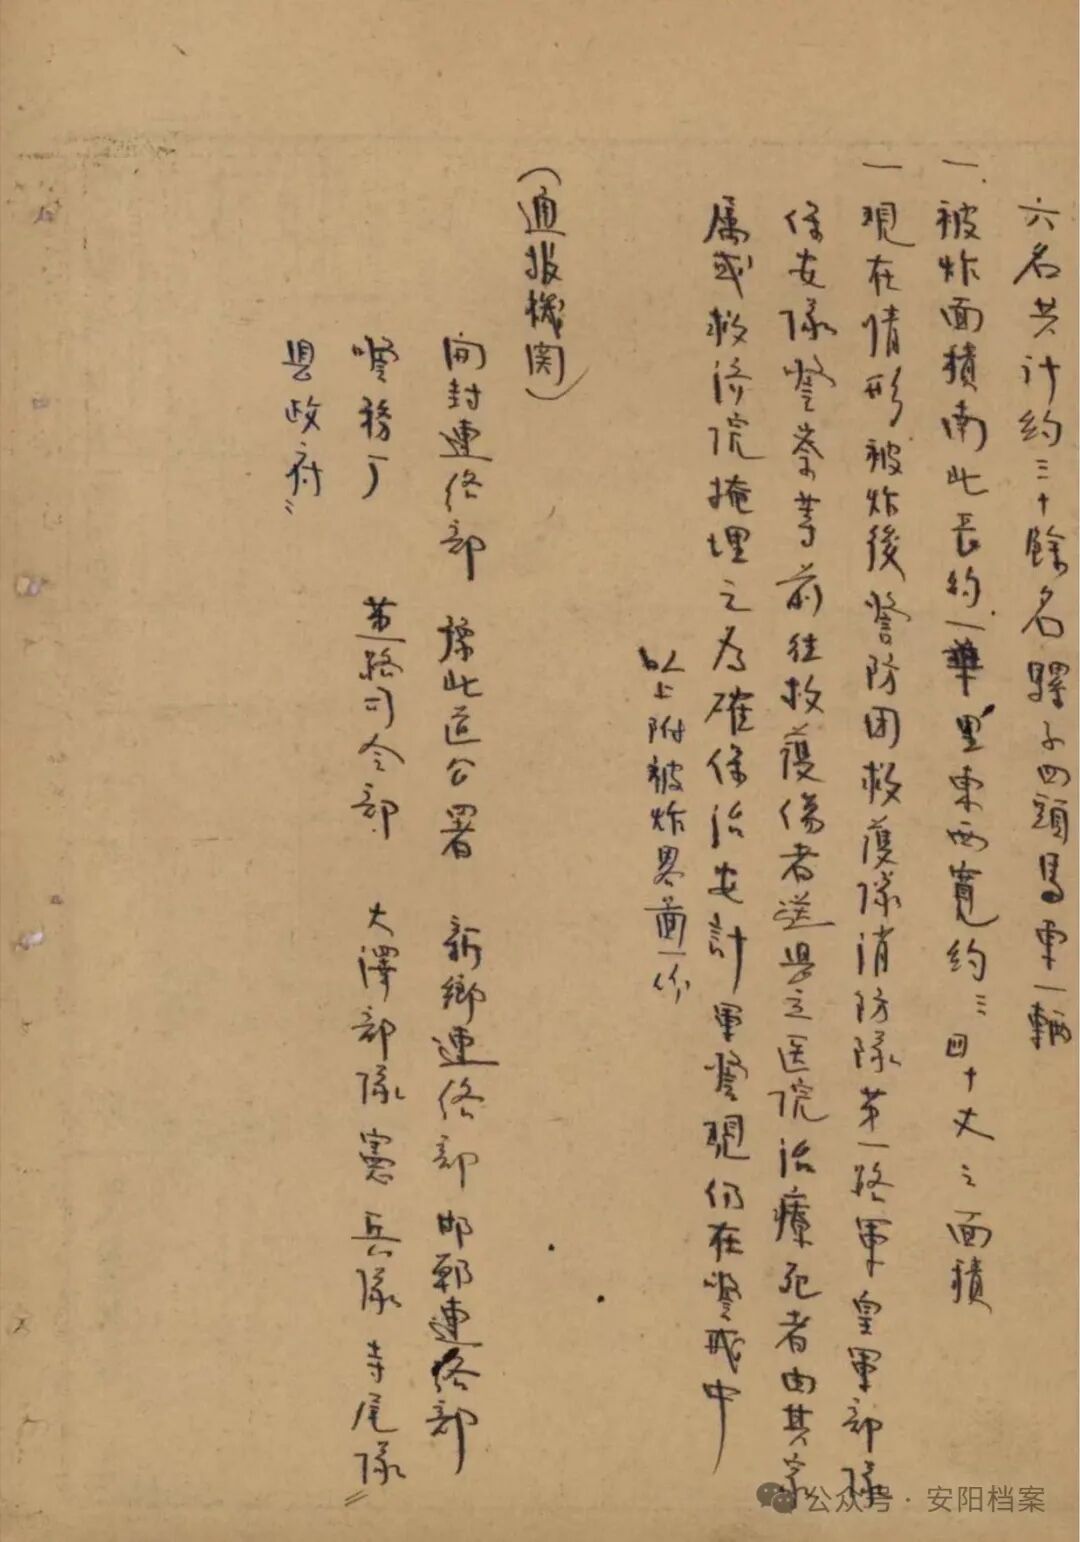 六名共计約三十餘名騾子四頭馬車一輛
一、被炸面積南北長約一華里東西寬約三四十丈之面積
一現在情形被炸後警防团救護隊消防隊第一路軍皇軍部隊
保安隊警察等前往救護傷者送县立医院治療死者由其家
属或救済院掩埋之為確保治安計軍警現仍在警戒中
以上附被炸畧圖一份
（通报機関）
開封連络部 豫北道公署 新鄉連络部 邯鄲連络部
警務厅 第一路司令部 大澤部隊 憲兵隊 寺尾隊
县政府
公众号·安阳档案